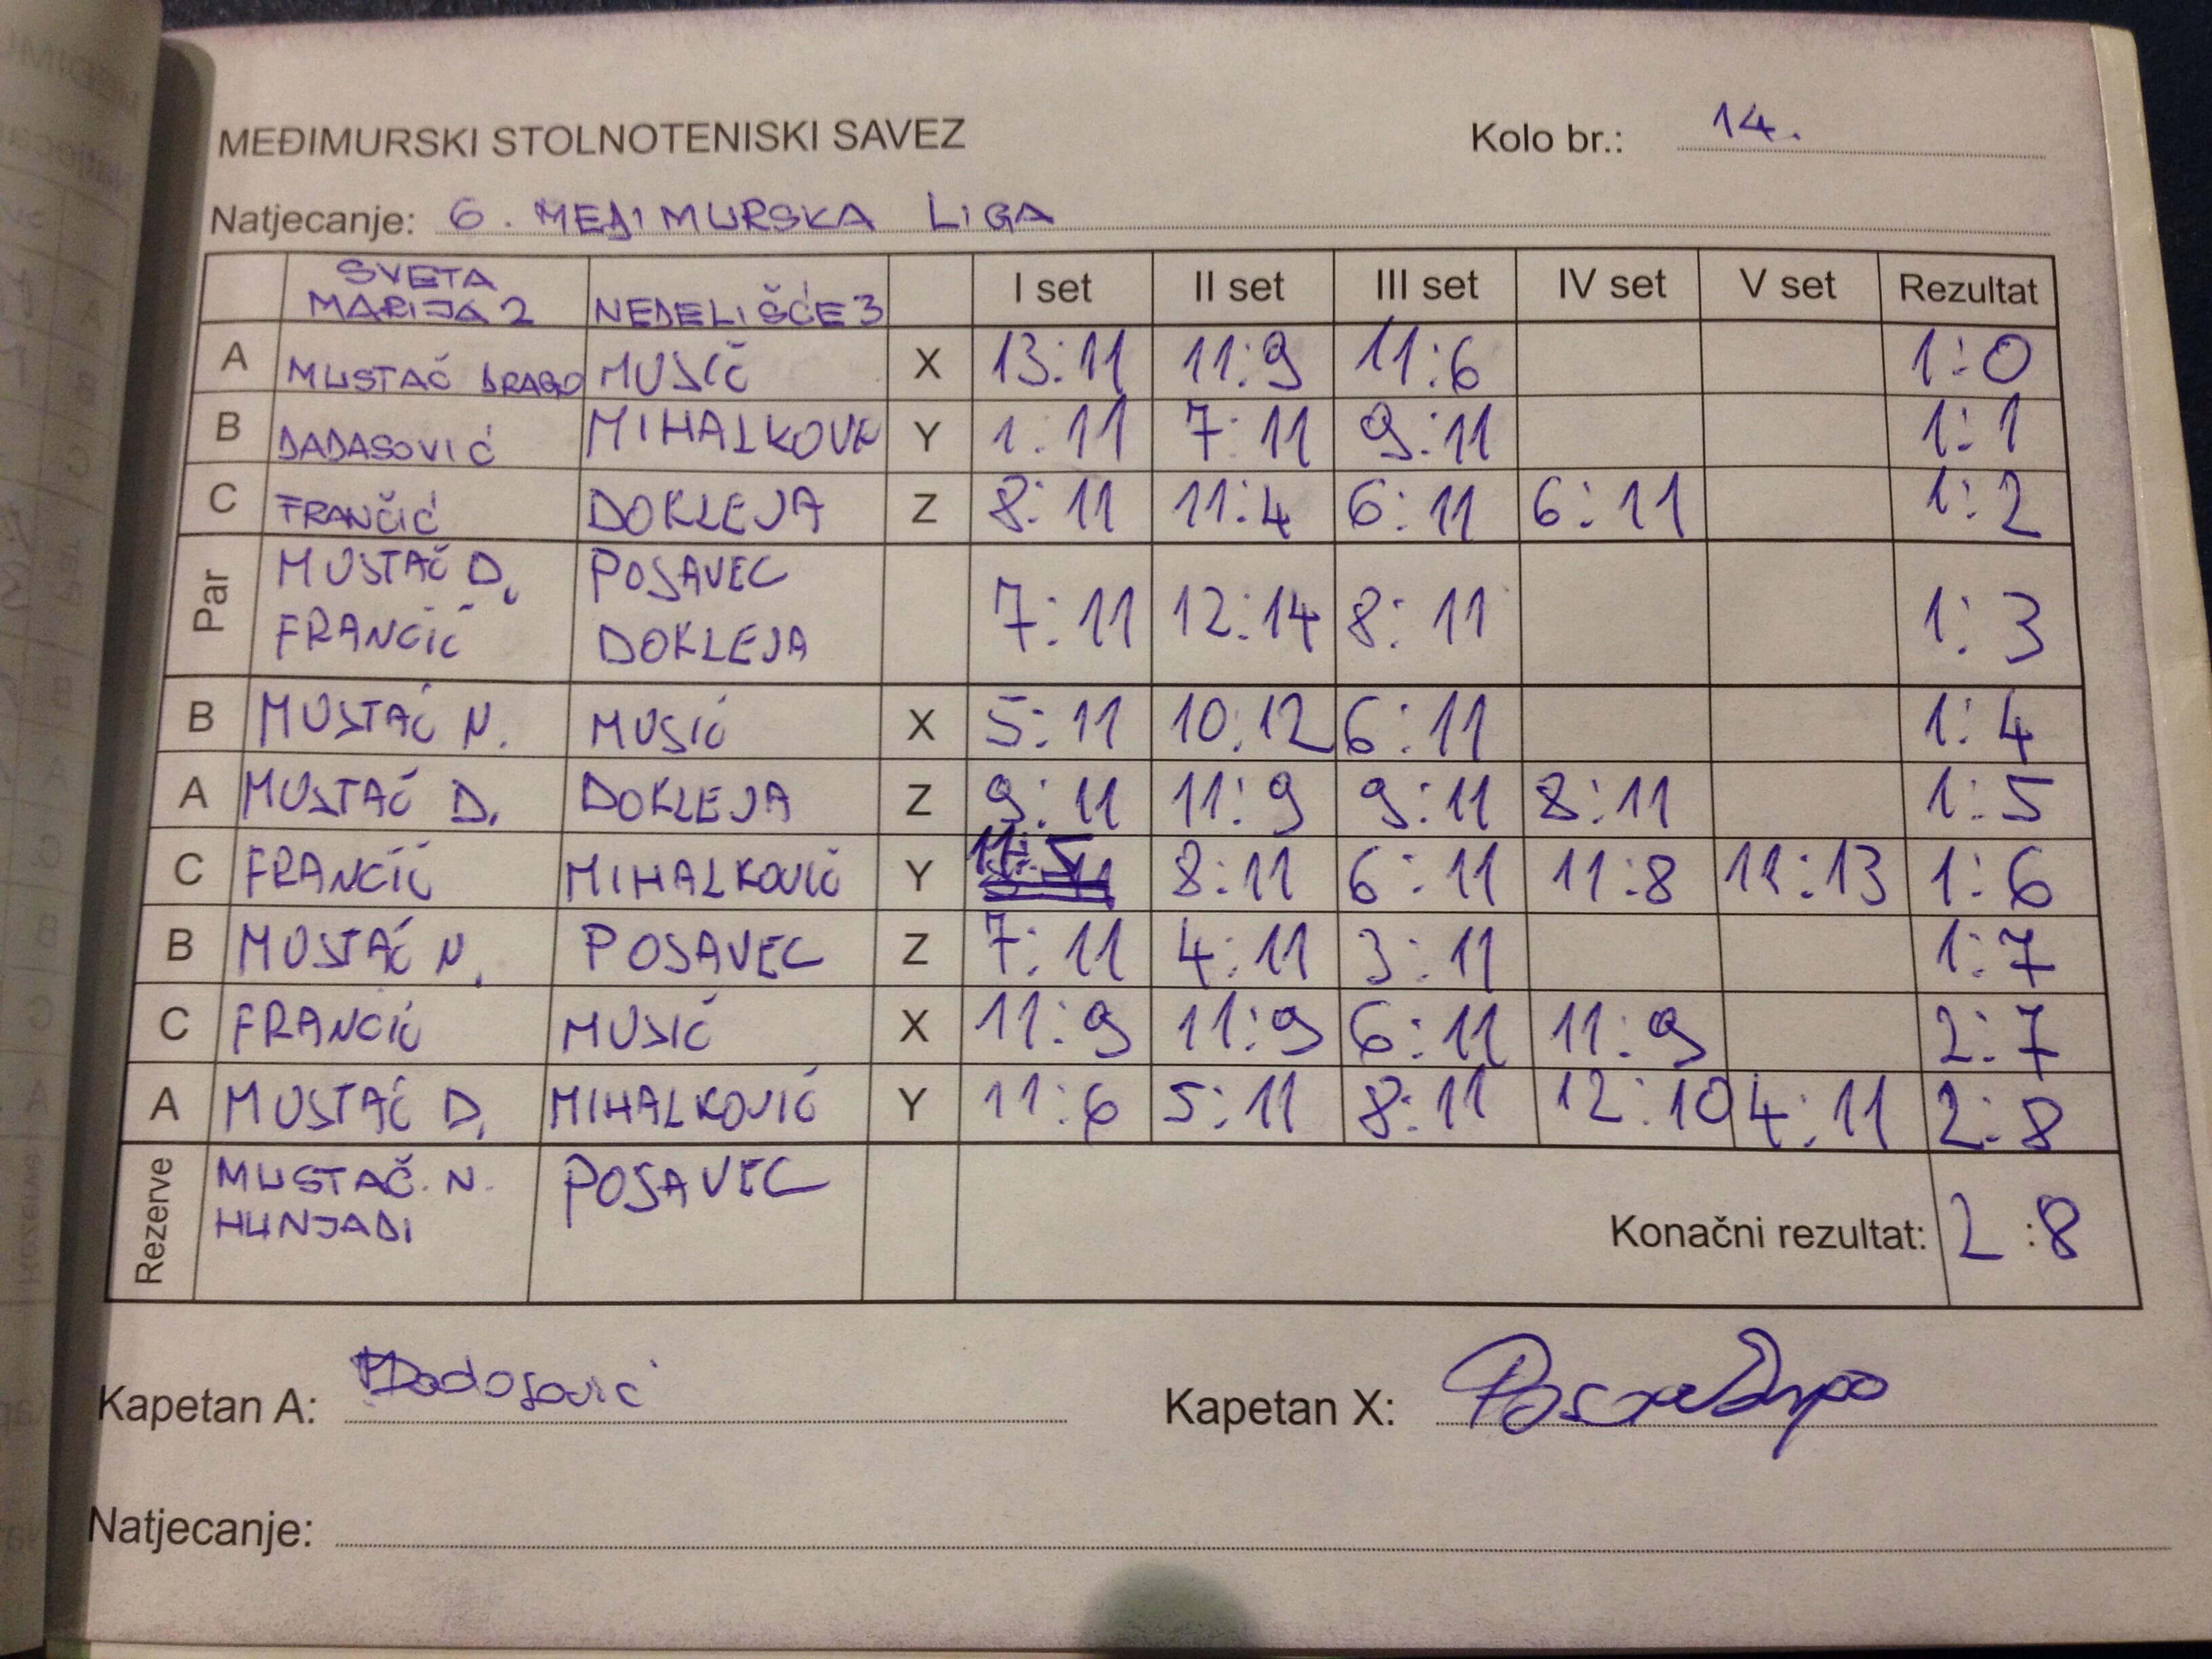 MEĐIMURSKI STOLNOTENISKI SAVEZ Kolo br.: 14.
Natjecanje: 6. MEĐIMURSKA LIGA
SVETA MARIJA 2 NEDELIŠĆE 3 I set II set III set IV set V set Rezultat
A MUSTAČ DRAGO MUSIČ X 13:11 11:9 11:6 1:0
B DADASOVIĆ MIHALKOVIĆ Y 1:11 7:11 9:11 1:1
C FRANČIĆ DOKLEJA Z 8:11 11:4 6:11 6:11 1:2
Par MUSTAČ D. POSAVEC 7:11 12:14 8:11 1:3
FRANCIĆ DOKLEJA
B MUSTAĆ N. MUSIĆ X 5:11 10:12 6:11 1:4
A MUSTAĆ D. DOKLEJA Z 9:11 11:9 9:11 8:11 1:5
C FRANCIĆ MIHALKOVIĆ Y 11:5 8:11 6:11 11:8 11:13 1:6
B MUSTAĆ N. POSAVEC Z 7:11 4:11 3:11 1:7
C FRANCIĆ MUSIĆ X 11:9 11:9 6:11 11:9 2:7
A MUSTAĆ D. MIHALKOVIĆ Y 11:6 5:11 8:11 12:10 4:11 2:8
Rezerve MUSTAČ. N. POSAVEC Konačni rezultat: 2:8
HUNJADI
Kapetan A: Dadosović Kapetan X:
Natjecanje: